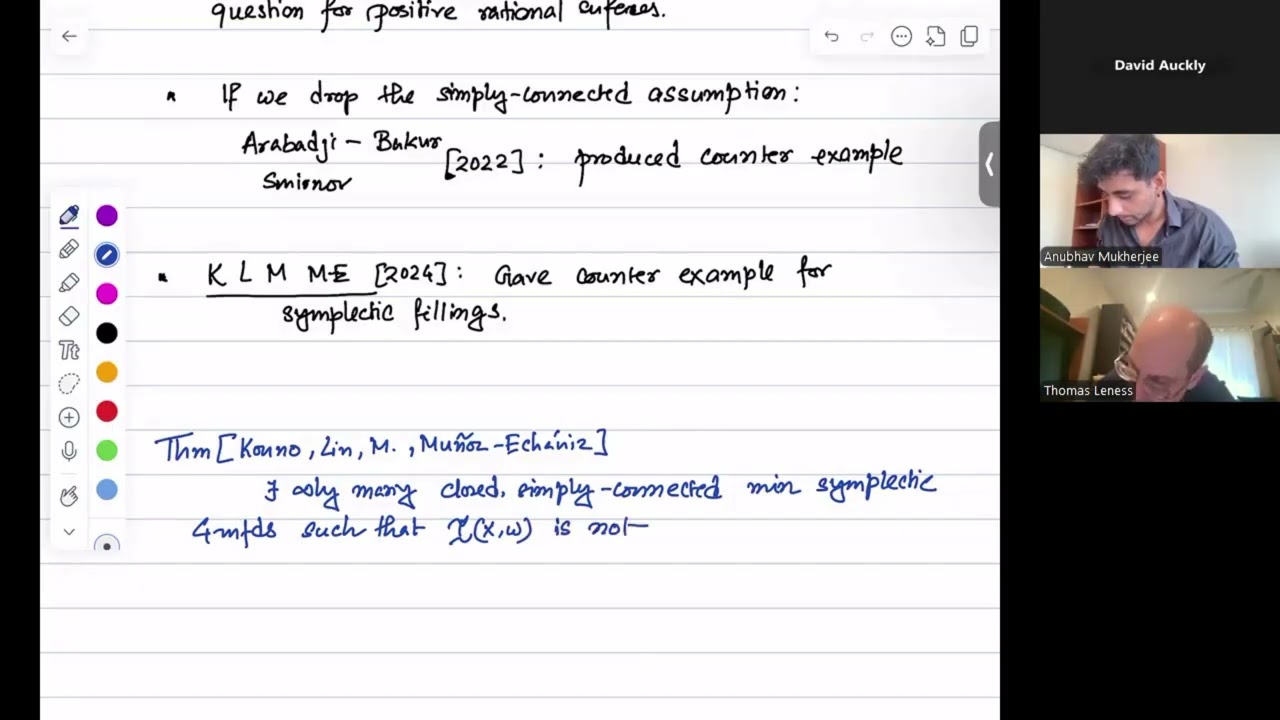 question for positive rational surfaces.
If we drop the simply-connected assumption:
Arabadji - Bakur
Smirnov
[2022]: produced counter example
K L M ME [2024]: Gave counter example for
symplectic fillings.
Thm [Konno, Lin, M., Muñoz-Echániz]
∃ ∞ly many closed, simply-connected min symplectic
4mfds such that I(X,ω) is not
Tt
David Auckly
Anubhav Mukherjee
Thomas Leness